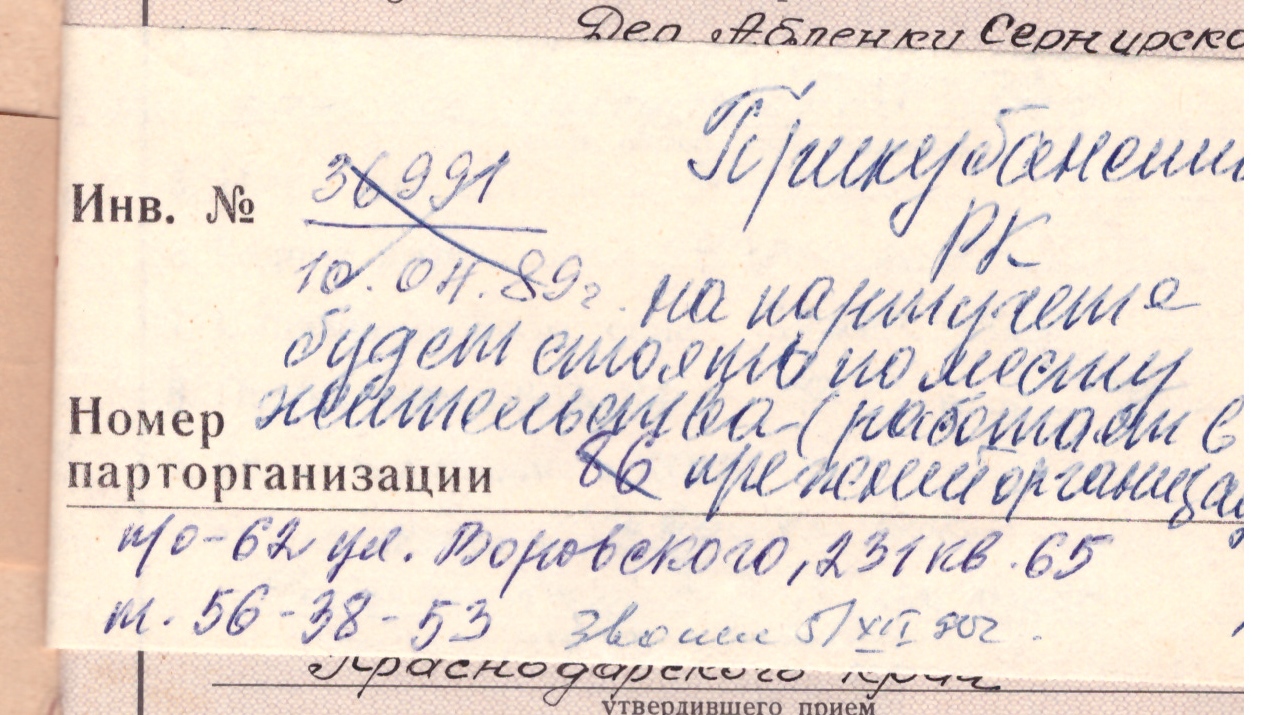 Деп Абленки Сернирско
Прикубанский
РК
Инв. № 36991
10.04.89г. на партучете
будет стоять по месту
жительства (работает в
Номер
парторганизации 86 прежней организац
п/о-62 ул. Воровского, 231 кв. 65
т. 56-38-53 Звонил 5/XII 90г.
Краснодарского края
утвердившего прием